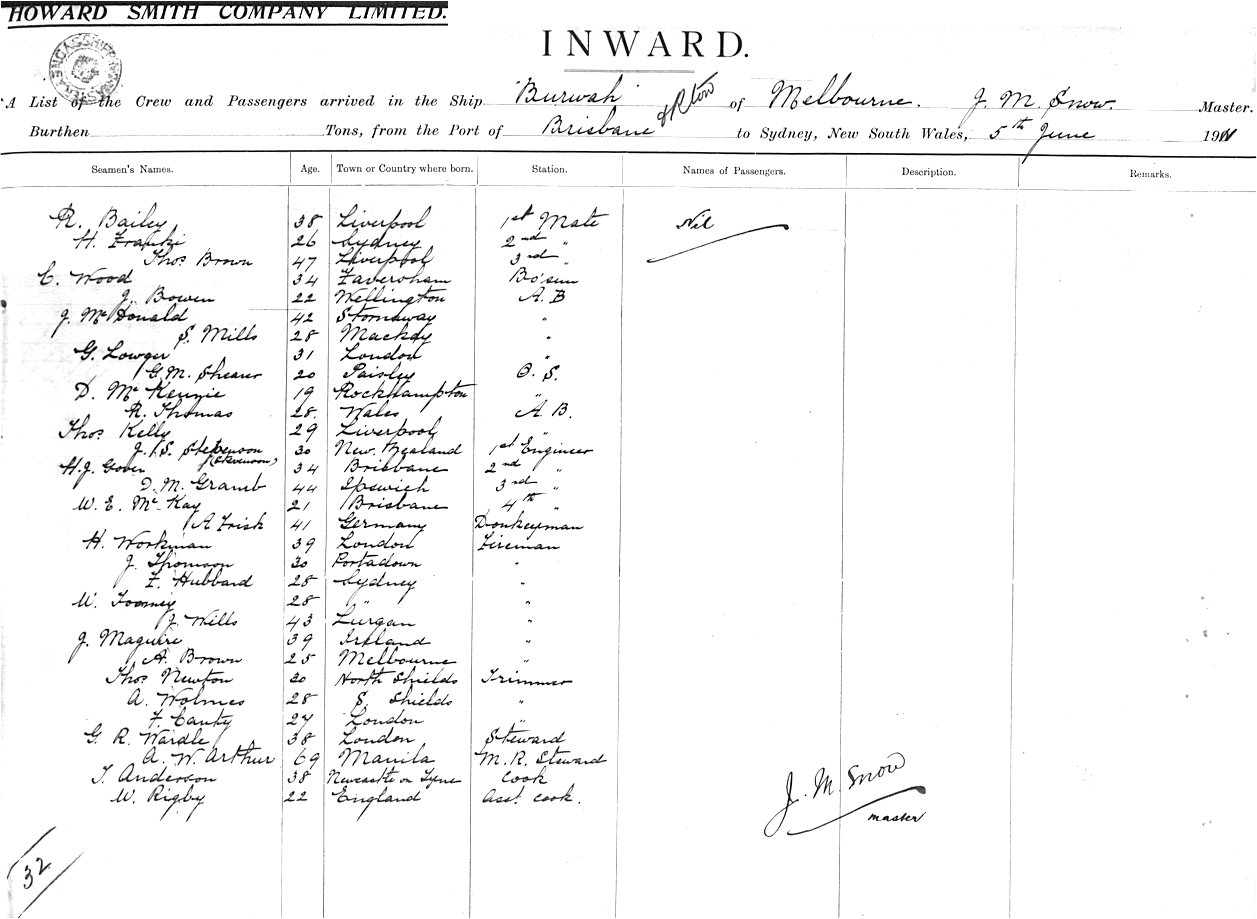 HOWARD SMITH COMPANY LIMITED.
INWARD.
A List of the Crew and Passengers arrived in the Ship "Burwah" of Melbourne. J. M. Snow. Master.
& R'ton
Burthen Tons, from the Port of Brisbane to Sydney, New South Wales, 5th June 1911
Seamen's Names. Age. Town or Country where born. Station. Names of Passengers. Description. Remarks.
R. Bailey 38 Liverpool 1st Mate Nil
H. Franki 26 Sydney 2nd "
Thos Brown 47 Liverpool 3rd "
C. Wood 34 Faversham Bo'sun
J. Bowen 22 Wellington A.B
J. McDonald 42 Stornaway "
S. Mills 28 Mackay "
G. Lowger 31 London "
G. M. Shearer 20 Paisley O. S.
D. McKenzie 19 Rockhampton "
R. Thomas 28. Wales A. B.
Thos Kelly 29 Liverpool "
J. S. Stephenson 30 New Zealand 1st Engineer
(Stevenson)
H. J. Gover 34 Brisbane 2nd "
D. M. Gramb 44 Ipswich 3rd "
W. E. McKay 21 Brisbane 4th "
A Frisk 41 Germany Donkeyman
H. Workman 39 London Fireman
J. Thomson 30 Portadown "
F. Hubbard 28 Sydney "
W. Toomey 28 " "
J. Wills 43 Lurgan "
J. Maguire 39 Ireland "
A. Brown 25 Melbourne "
Thos Newton 30 North Shields Trimmer
A. Wolmes 28 S. Shields "
F. Canty 27 London "
G. R. Wardle 38 London Steward
A. W. Arthur 69 Manila M. R. Steward
T. Anderson 38 Newcastle on Tyne Cook
W. Rigby 22 England Asst. cook.
J. M. Snow
master
32